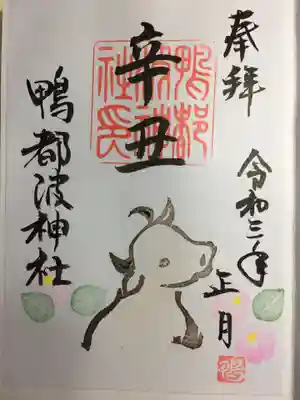 奉拝
令和三年
正月
辛丑
鴨都波神社
鴨都波神社之印
鴨